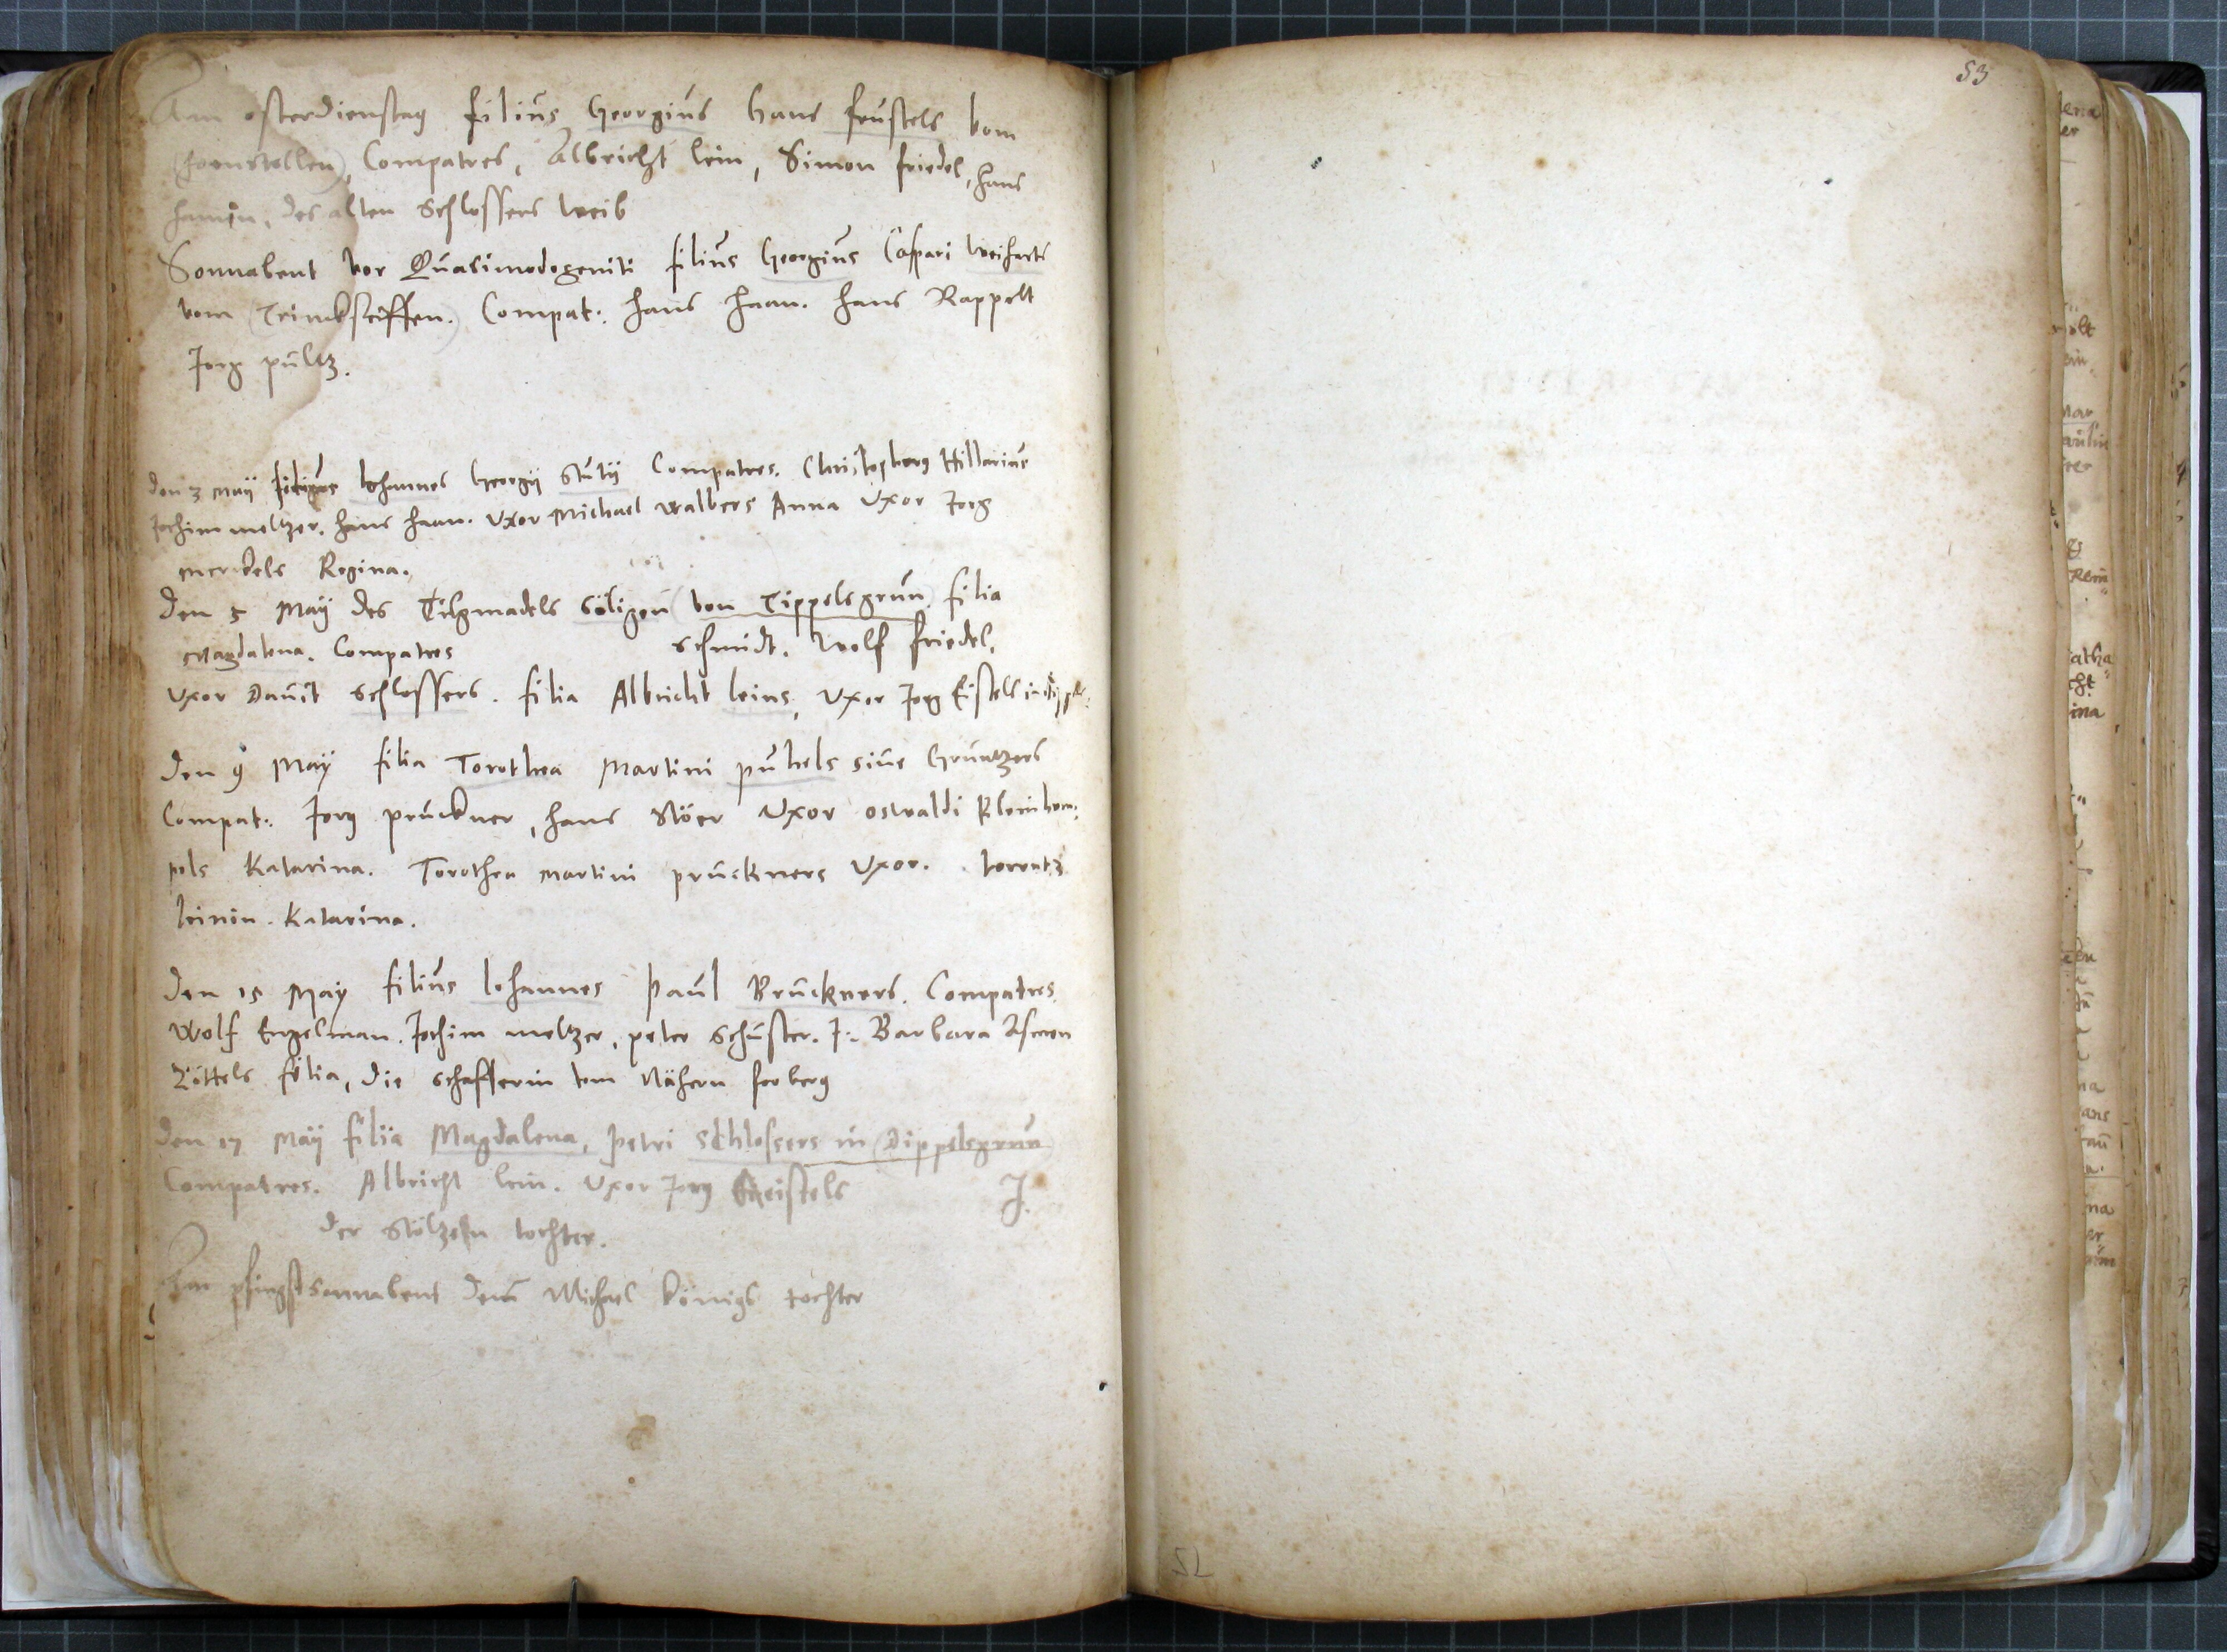 Am osterdienstag filius Georgius Hans feustels vom
Compatres, Albricht lein, Simon friedel, hans
des alten Schlossers weib
Sonnabent vor Quasimodogeniti filius Georgius Caspari weiharts
vom (Trinckseiffen.) Compat: hans haan. hans Rappolt
Jorg pultz.
Den 3 Maÿ filius Johannes Georgÿ Compatres. Christophorus Hillarius
Jochim meltzer. hans haan. Uxor Michael walbers Anna Uxor Jorg
merckels Regina.
Den 5 Maÿ des söligen (von Tippelsgrun) filia
Magdalena. Compatres schmidt. Wolf friedel.
Uxor Dauit schlossers. filia Albricht leins, Uxor Jorg
Den 9 Maÿ filia Torothea Martini puhels siue
Compat: Jorg pruckner, hans Stöer Uxor oswaldi
pels Katarina. Torothea martini pruckners Uxor. lorentz
leinin. Katarina.
Den 15 Maÿ filius Johannes Paul Bruckners. Compatres
Wolf Engelman. Jochim meltzer, peter schuster. J: Barbara
filia, die schafferin vom
Den 17 Maÿ filia Magdalena, petri schlossers in (Dippelsgrun)
Compatres. Albricht lein. Uxor Jorg J.
der tochter.
Am pfingstsonnabent Michael königs tochter
53
52